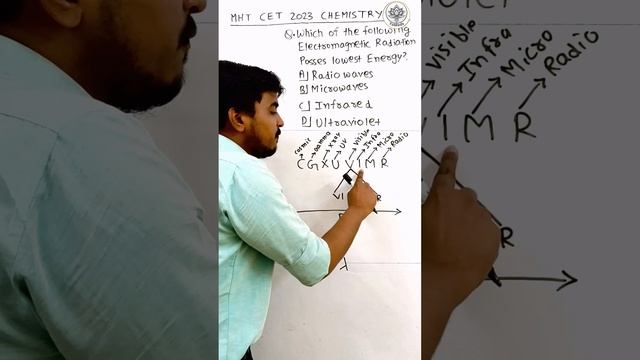 MHT CET 2023 CHEMISTRY
Q. Which of the following
Electromagnetic Radiation
Posses lowest Energy?
A] Radiowaves
B] Microwaves
C] Infrared
D] Ultraviolet
cosmic gamma x-ray UV visible Infra Micro Radio
C G X U V I M R
VI R
λ
visible Infra Micro Radio
I M R
R